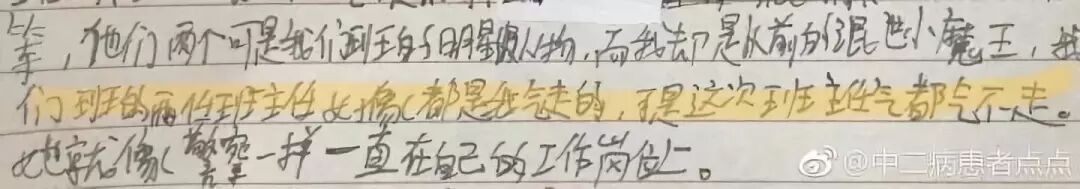 等，他们两个可是我们班的明星级人物，而我却是从前的混世小魔王，我
们班的两任班主任好像都是我气走的，可是这次班主任气都气不走。
她就像警察一样一直在自己的工作岗位上。
@中二病患者点点